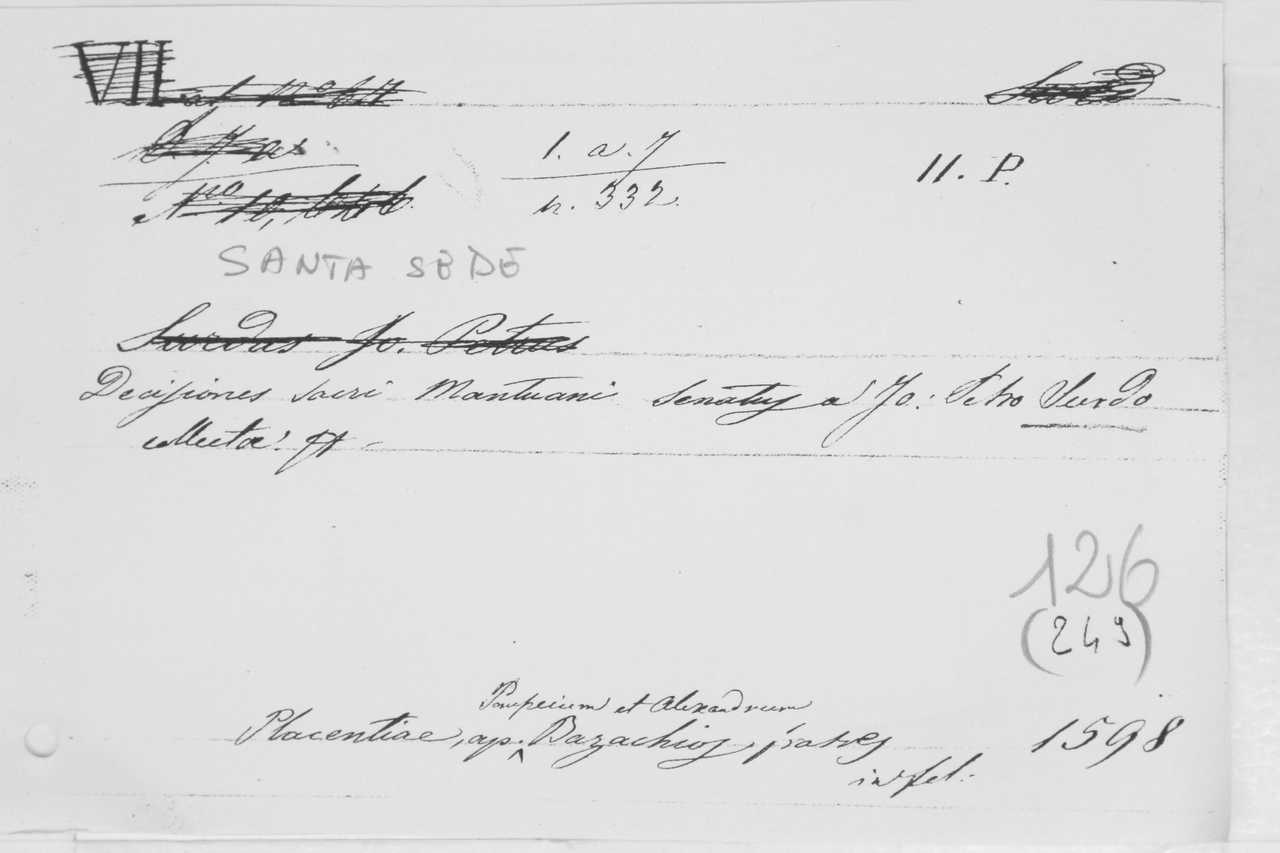 VII
1. a. 7
n. 332.
11. P.
SANTA SEDE
Surdus Jo. Petrus
Decisiones sacri Mantuani Senatus a Jo: Petro Surdo
collectae. ff
126
(249)
Pompeium et Alexandrum
Placentiae, ap. Bazachios, fratres 1598
in fol.